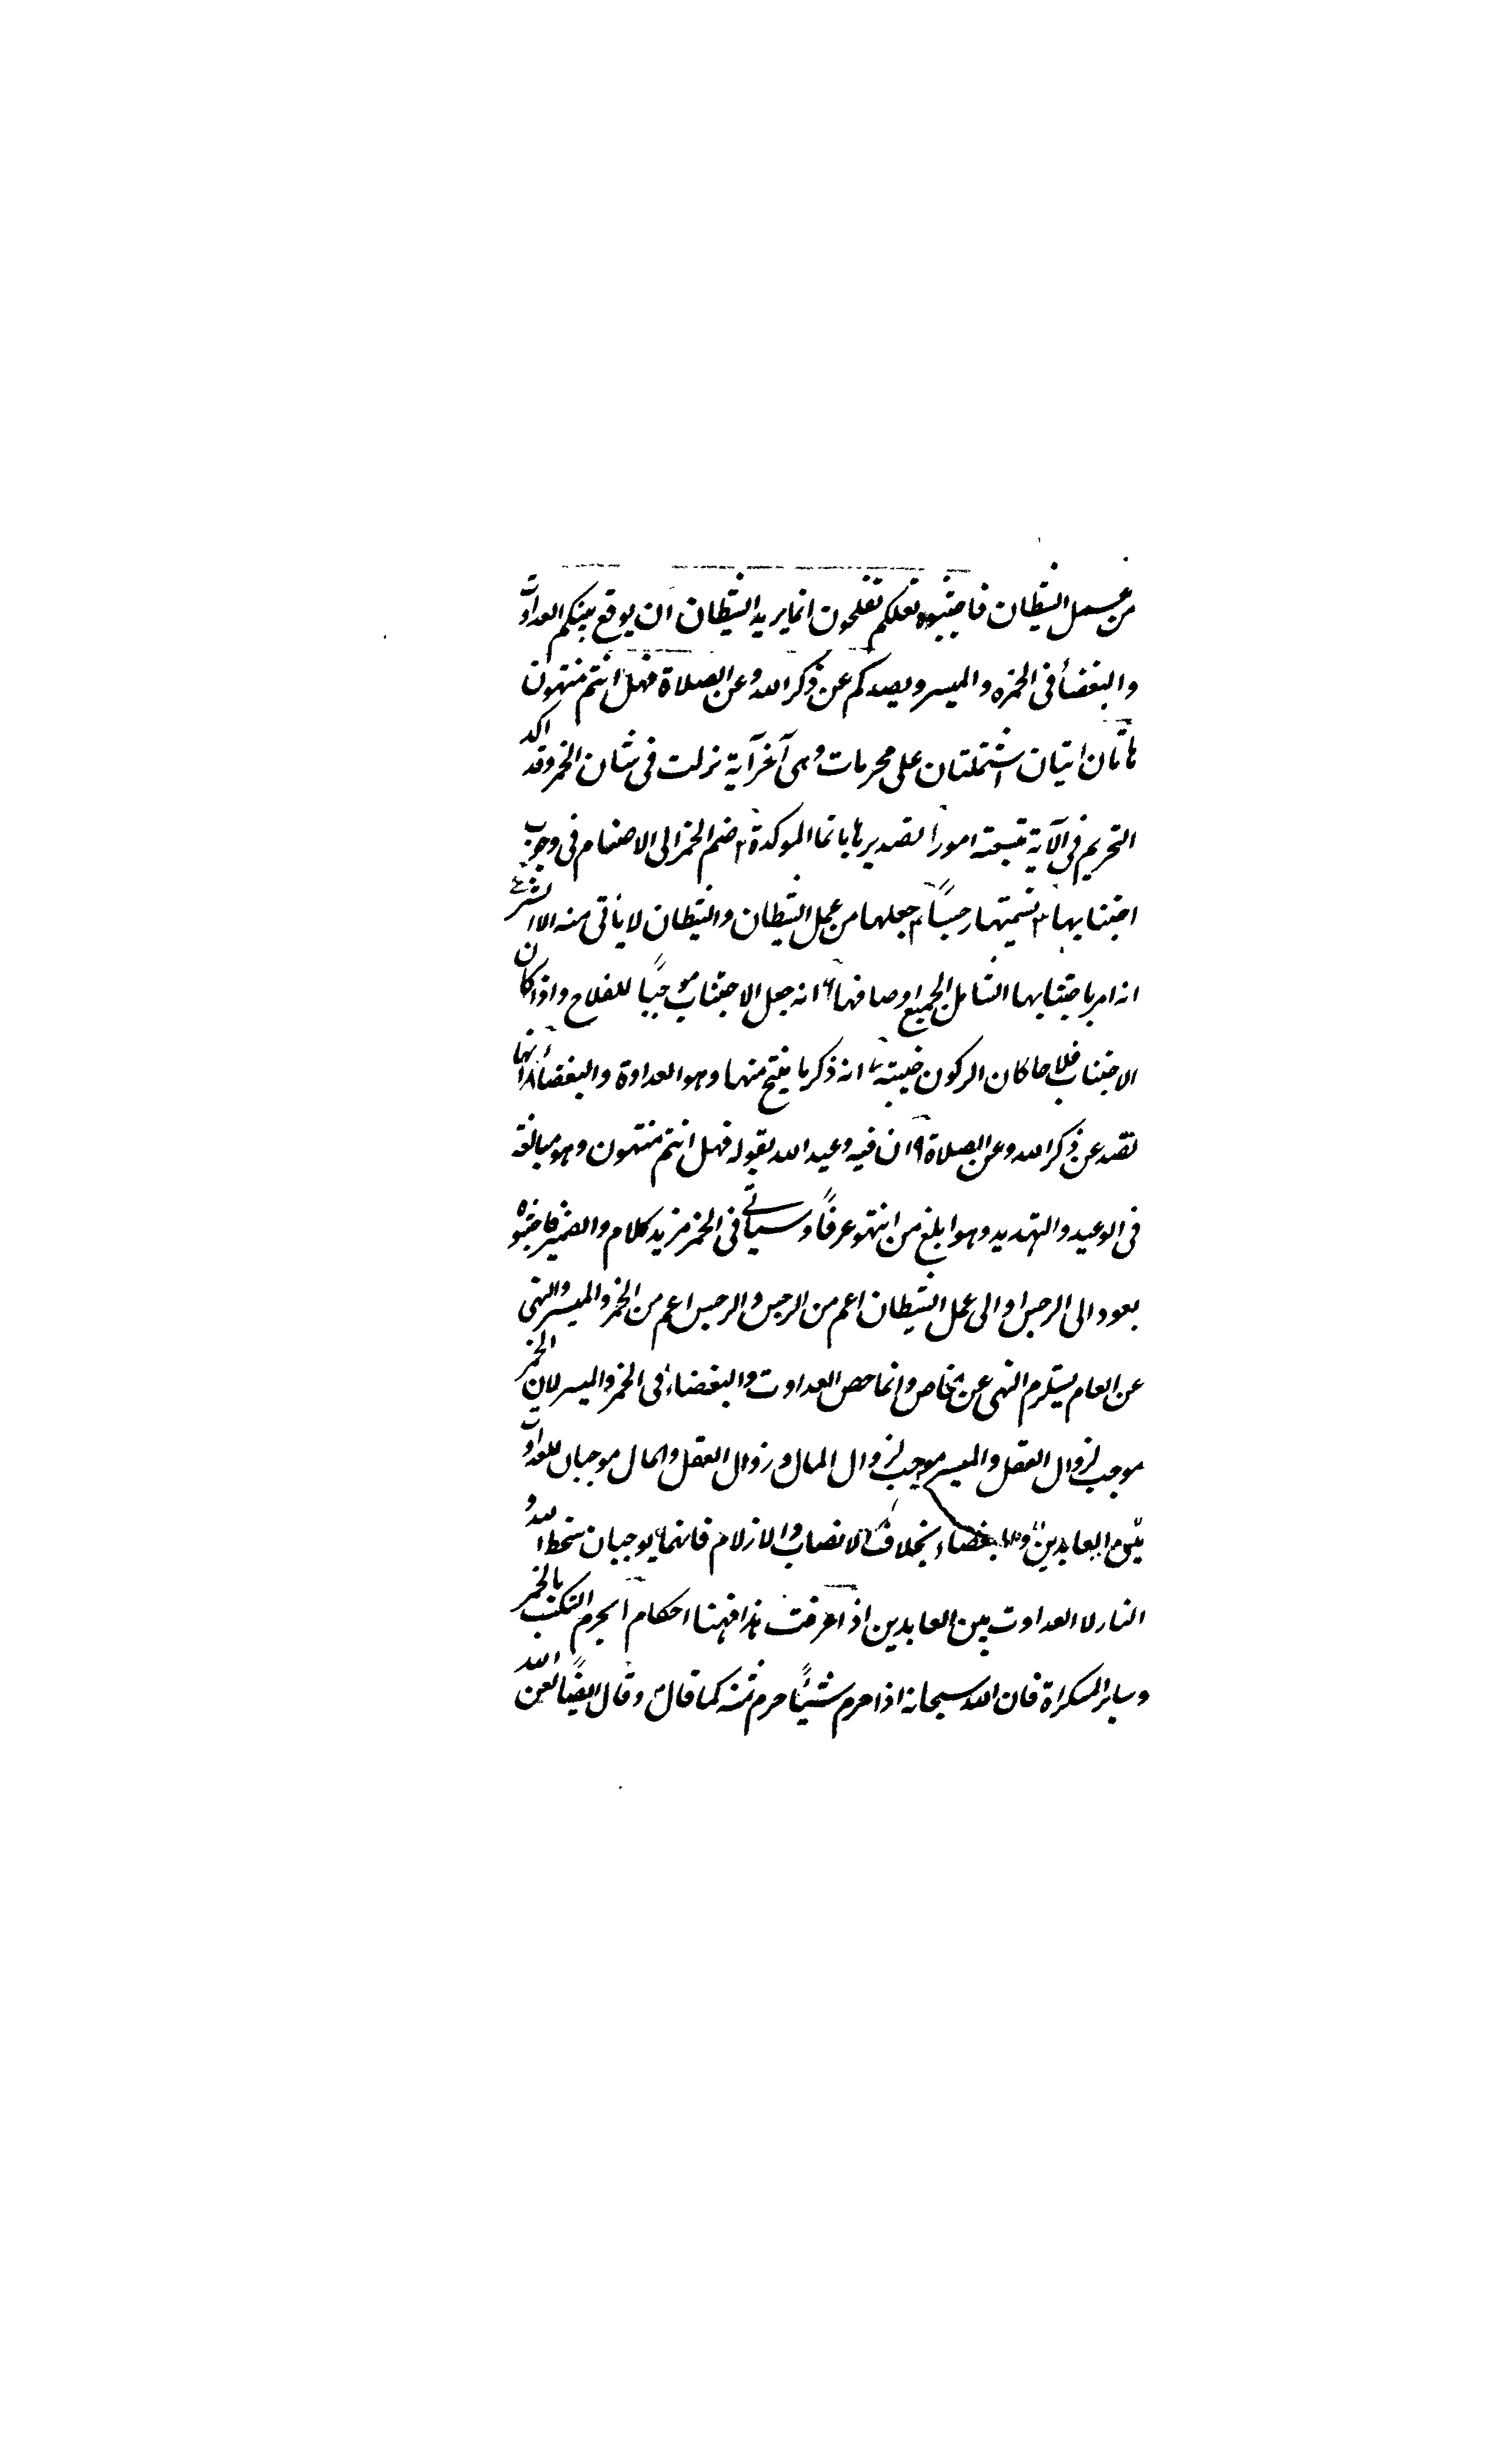 من عمل الشيطان فاجتنبوه لعلكم تفلحون انما يريد الشيطان ان يوقع بينكم العداوت
والبغضأ فى الخمره والميسر ويصدكم عن ذكر الله وعن الصلاة فهل انتم منتهون
هاتان ايتان اشتملتان على محرمات وهى آخر آية نزلت فى شان الخمر وقد اكد
التحريم فى الآية تسعة امورا تصديرها بانما الموكدة ٢ ضم الخمر الى الاصنام فى وجوب
اجتنابها ٣ تسميتها رجسًا ٤ جعلها من عمل الشيطان والشيطان لا يأتى منه الا الشر ٥
انه امر باجتنابها الشامل لجميع اوصافها ٦ انه جعل الاجتناب موجبًا للفلاح واذا كان
الاجتناب فلاحا كان الركون خيبته ٧ انه ذكر ما ينتج منها وهو العداوة والبغضأ ٨ انها
تصد عن ذكر الله وعن الصلاة ٩ ان فيه وعيد الله بقوله فهل انتم منتهون وهو مبالغة
فى الوعيد والتهديد وهو ابلغ من انتهو عرفًا وسيأتى فى الخمر مزيد كلام والضمير فاجتنبوه
يعود الى الرجس او الى عمل الشيطان اعم من الرجس والرجس اعم من الخمر والميسر والنهى
عن العام يستلزم النهى عن الخاص وانما خص العداوت والبغضاء فى الخمر والميسر لان الخمر
موجب لزوال العقل والميسر موجب لزوال المال وزوال العقل والمال موجبان للعداوت
بين العابدين والبغضاء بخلاف الانصاب والازلام فانهما يوجبان سخط الله و
النار لا العداوت بين العابدين اذا عرفت هذا فهنا احكام ا يحرم التكسب بالخمر
وساير المسكراة فان الله سبحانه اذا حرم شيئًا حرم ثمنه كما قال ص وقال ايضًا لعن الله